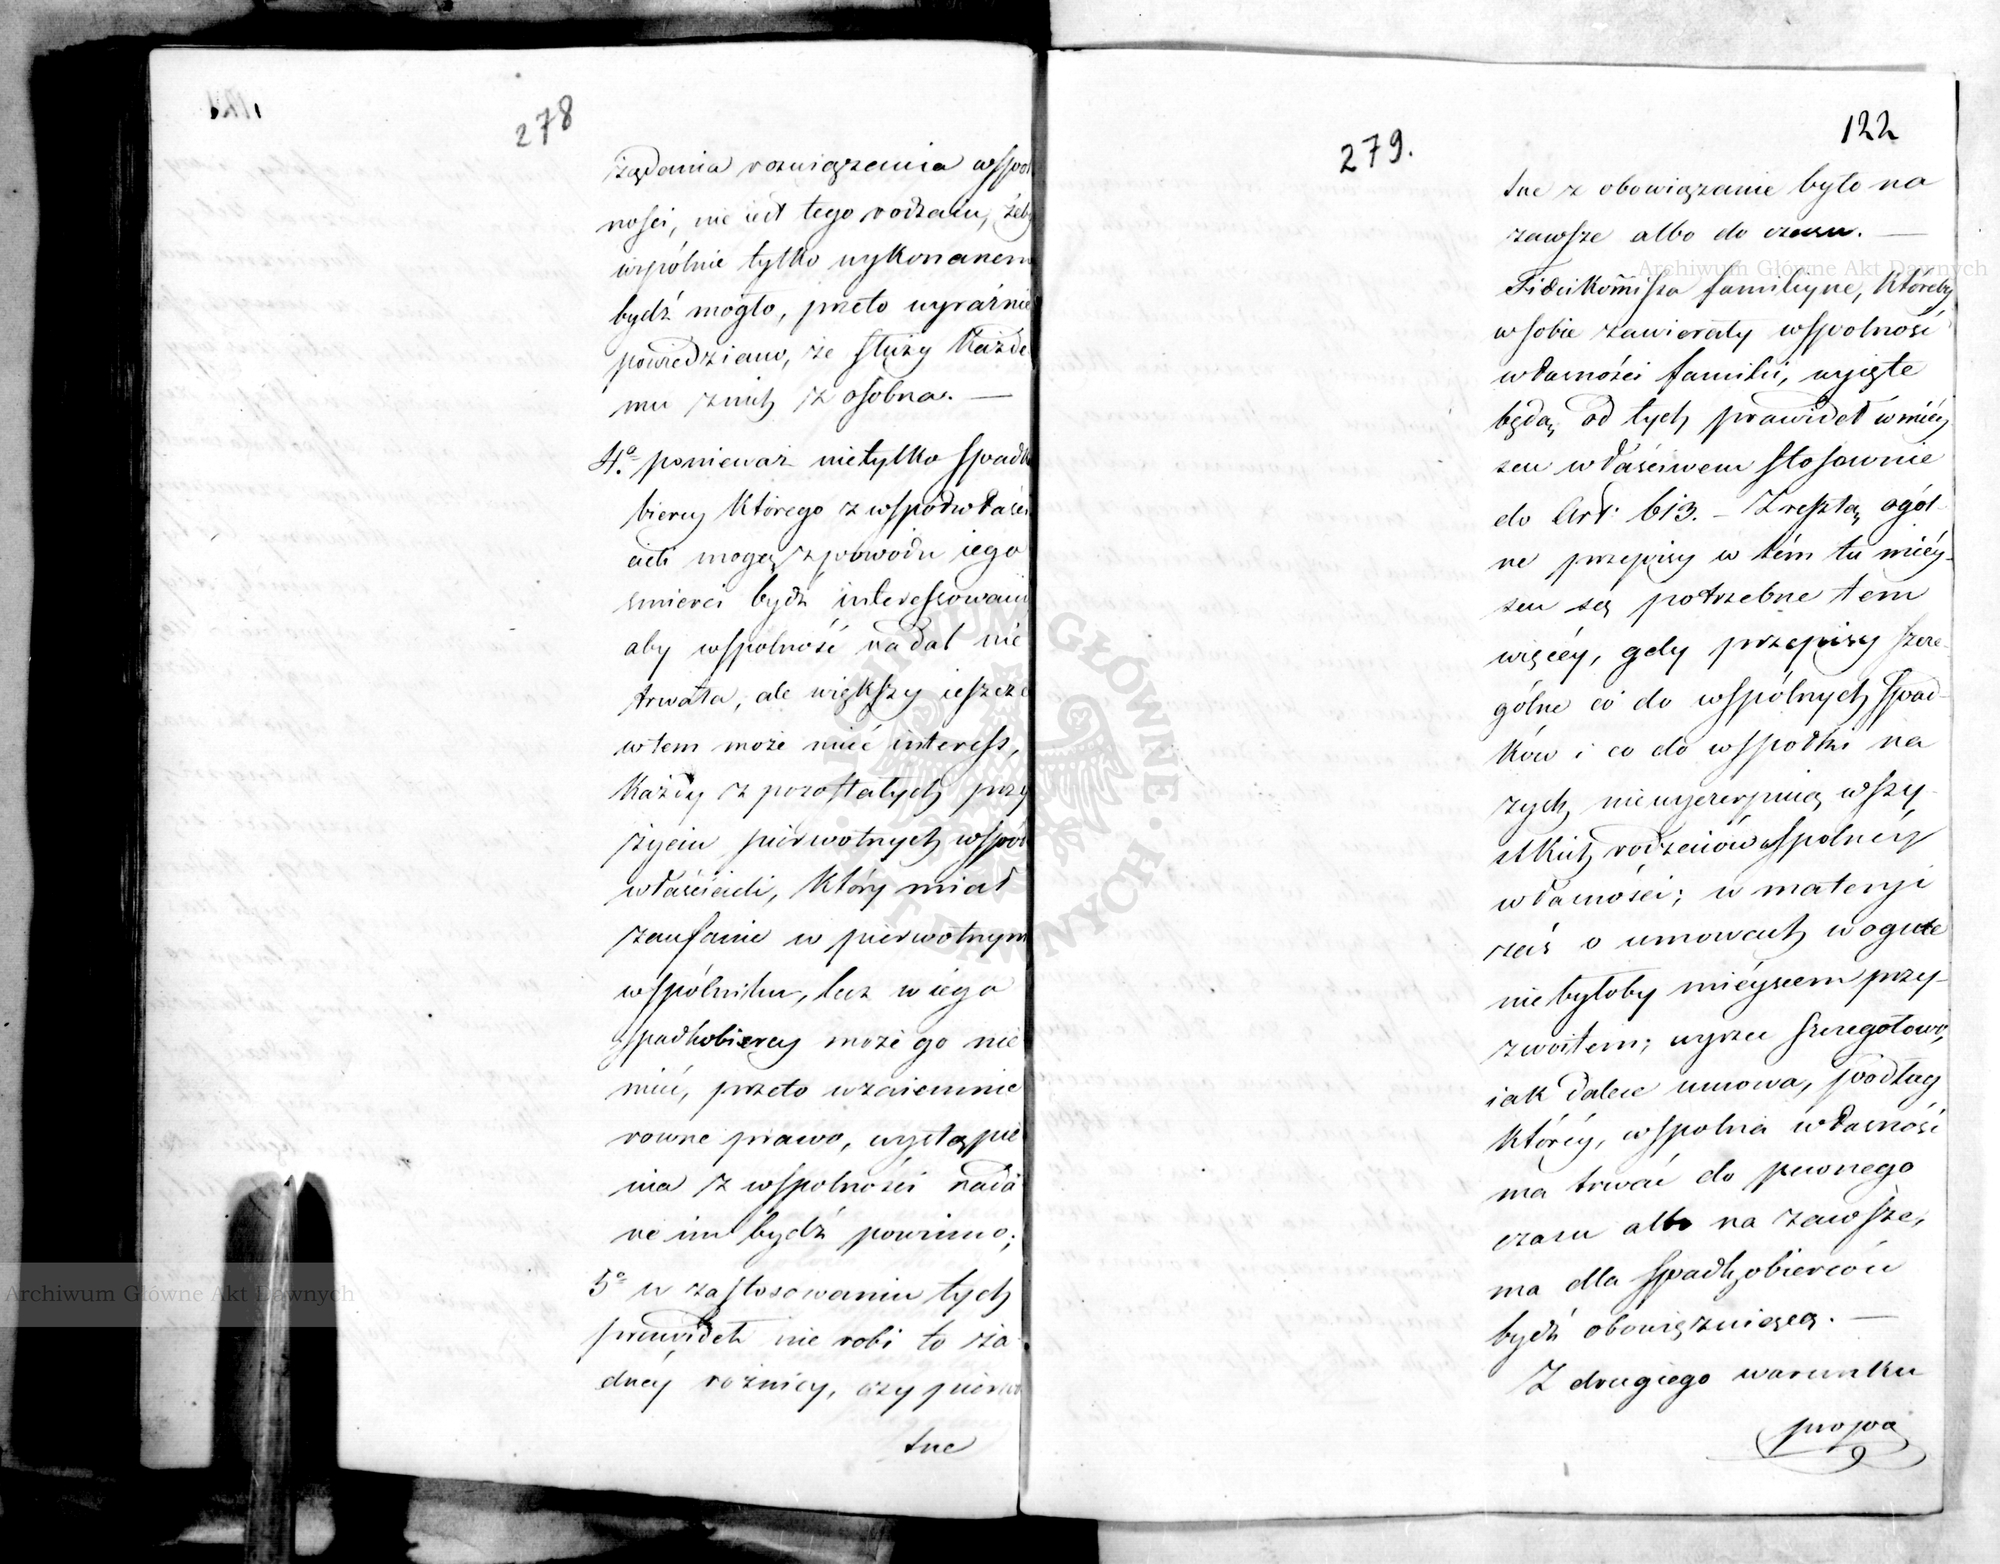 278
żądania rozwiązania wspól
ności, nie iest tego rodzaiu, żeby
wspólnie tylko wykonanem
bydź mogło, przeto wyraźnie
powiedziano, że służy każde
mu z nich z osobna. —
4.º ponieważ nietylko spadko
biercy którego z współwłaści
cieli mogą z powodu iego
smierci bydź interessowani
aby wspolność nadal nie
trwała, ale większy ieszcze
w tem może mieć interess,
każdy z pozostałych przy
życiu pierwotnych współ
właścicieli, który miał
zaufanie w pierwotnym
wspólniku, lecz w iego
spadkobiercy może go nie
mieć, przeto wzaiemnie
rowne prawo, wystąpie
nia z wspolności nada
ne im bydź powinno;
5º w zastosowaniu tych
prawideł nie robi to ża
dnéj rożnicy, czy pierwo
tne
279.
122
tne z obowiązanie było na
zawsze albo do czasu. —
Fideikommissa familiyne, któreby
w sobie zawierały wspolność
własności familii, wyięte
będą od tych prawideł w miéy
scu właściwem stosownie
do Art: 613. – Zresztą ogól-
ne przepisy w tém tu miéy-
scu są potrzebne tem
więcéy, gdy przepisy szcze-
gólne co do wspólnych spad-
ków i co do wspołki na
zych niewyczerpnią wszy-
stkich rodzaiów wspolnéy
własności; w materyi
zaś o umowach w ogule
nie byłoby miéyscem przy-
zwoitem; wyrzec szczegołowo,
iak dalece umowa, podług
któréy, wspolna własność
ma trwać do pewnego
czasu albo na zawsze,
ma dla spadkobierców
bydź obowięzuiącą. —
Z drugiego warunku
propo
Archiwum Główne Akt Dawnych
Archiwum Główne Akt Dawnych
ARCHIWUM GŁÓWNE AKT DAWNYCH